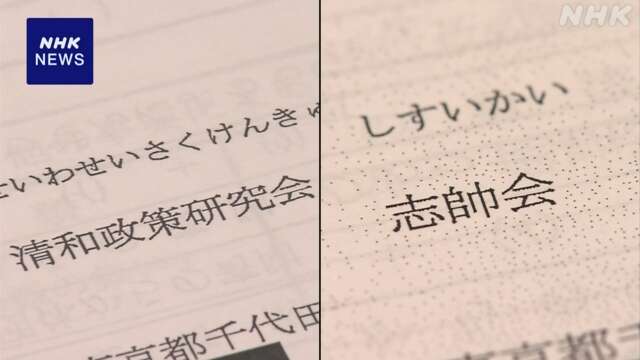 NHK
NEWS
NHK
せいわせいさくけんきゅ
清和政策研究会
東京都千代田
しすいかい
志帥会
東京都千